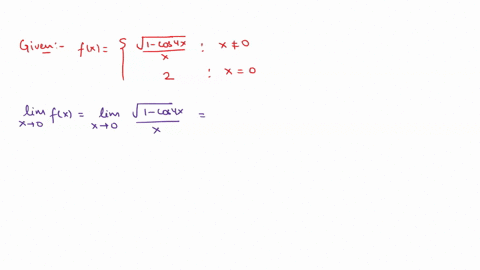 Given:- f(x) = { √(1-cos4x)/x : x ≠ 0
2 : x = 0
lim x→0 f(x) = lim x→0 √(1-cos4x)/x =